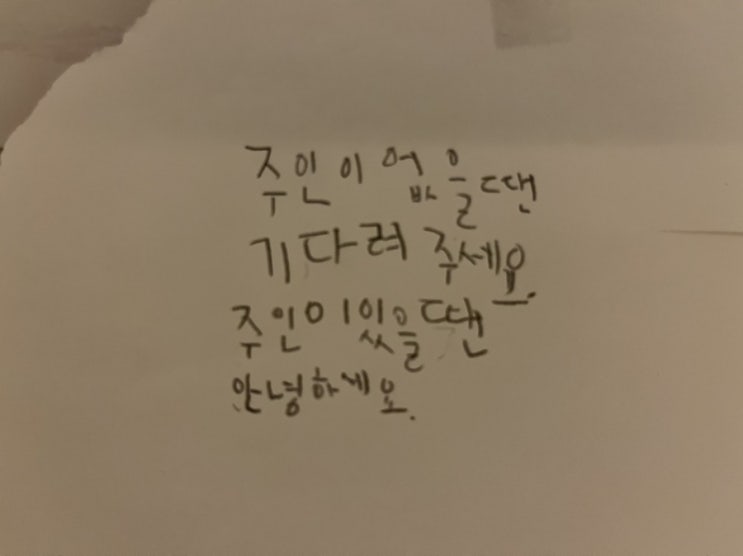 주인이 없을땐
기다려 주세요.
주인이있을땐
안녕하세요.